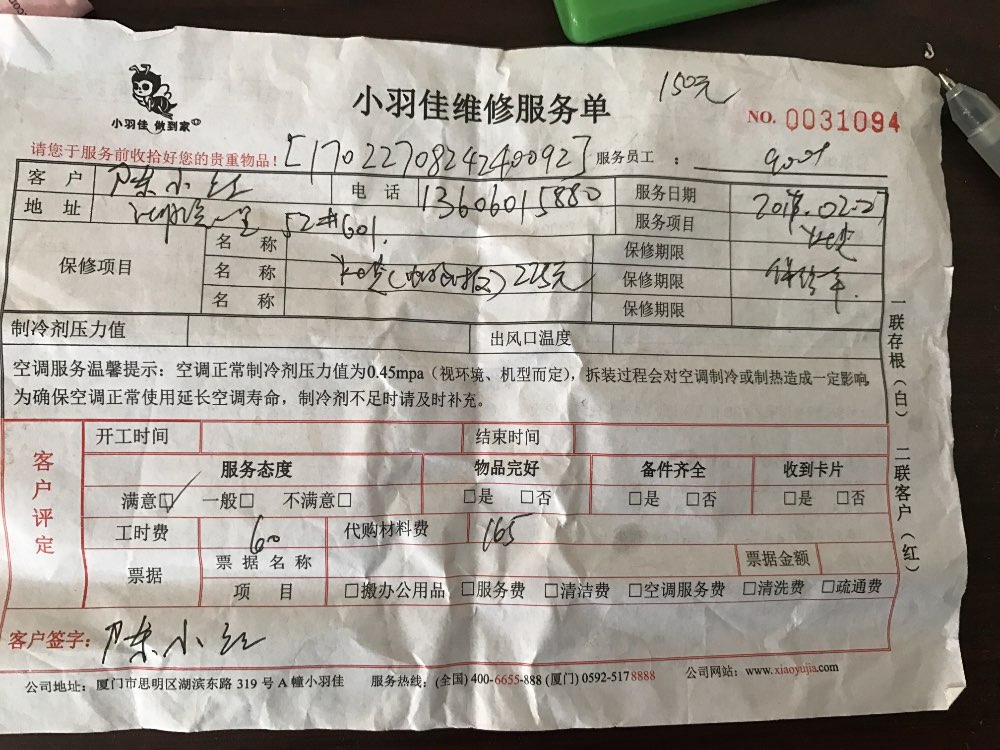 小羽佳 做到家
小羽佳维修服务单
150元
NO. 0031094
请您于服务前收拾好您的贵重物品！
[1702270824240092]
服务员工 ：
客 户 陈小红 电 话 13606015880 服务日期
地 址 52#601. 服务项目
保修项目
名 称 保修期限
名 称 225元 保修期限
名 称 保修期限
制冷剂压力值 出风口温度
空调服务温馨提示：空调正常制冷剂压力值为0.45mpa（视环境、机型而定），拆装过程会对空调制冷或制热造成一定影响,
为确保空调正常使用延长空调寿命，制冷剂不足时请及时补充。
一联存根（白） 二联客户（红）
客户评定
开工时间 结束时间
服务态度 物品完好 备件齐全 收到卡片
满意□ 一般□ 不满意□ □是 □否 □是 □否 □是 □否
工时费 60 代购材料费 165
票据 票据名称 票据金额
项 目 □搬办公用品 □服务费 □清洁费 □空调服务费 □清洗费 □疏通费
客户签字：陈小红
公司地址：厦门市思明区湖滨东路 319 号 A 幢小羽佳 服务热线：(全国) 400-6655-888 (厦门) 0592-5178888 公司网站：www.xiaoyujia.com